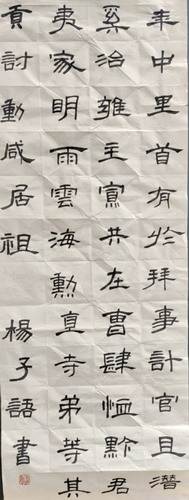 来中里首有於拜事計官且潛
奚治雖主賓共左曹肆恤黔君
夷家明雨雲海勳直寺弟等其
貢討動咸居祖 楊子語書